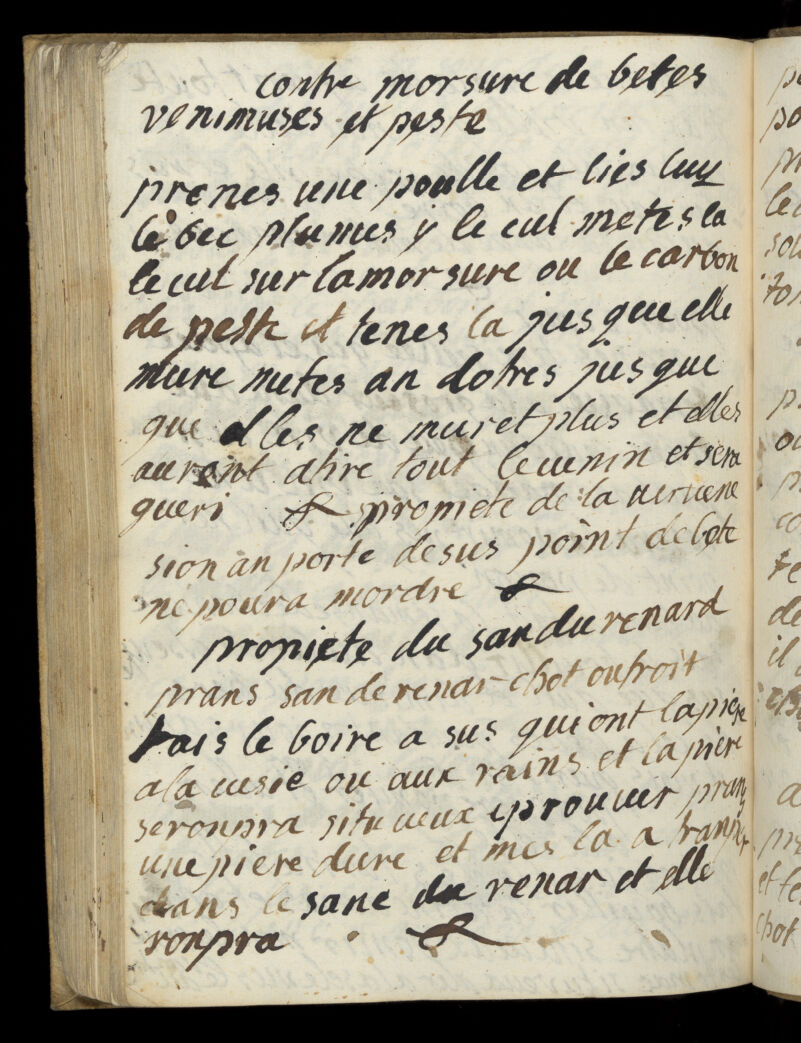 contre morsure de betes
venimuses et peste
prenes une poulle et lies luy
le bec plumes y le cul metes la
le cul sur la morsure ou le carbon
de peste et tenes la jusque elle
mure metes an dotres jusque
que elles ne muret plus et elles
auront atire tout le venin et sera
gueri & propiete de la vervene
sion an porte desus point de bete
ne poura mordre &
propiete du san du renard
prans san de renar chot ou froit
fais le boire a sus qui ont la piere
a la vesie ou aux rains et la piere
seronpra si tu veux eprouver prans
une piere dure et mes la a tranper
dans le sanc du renar et elle
ronpra &